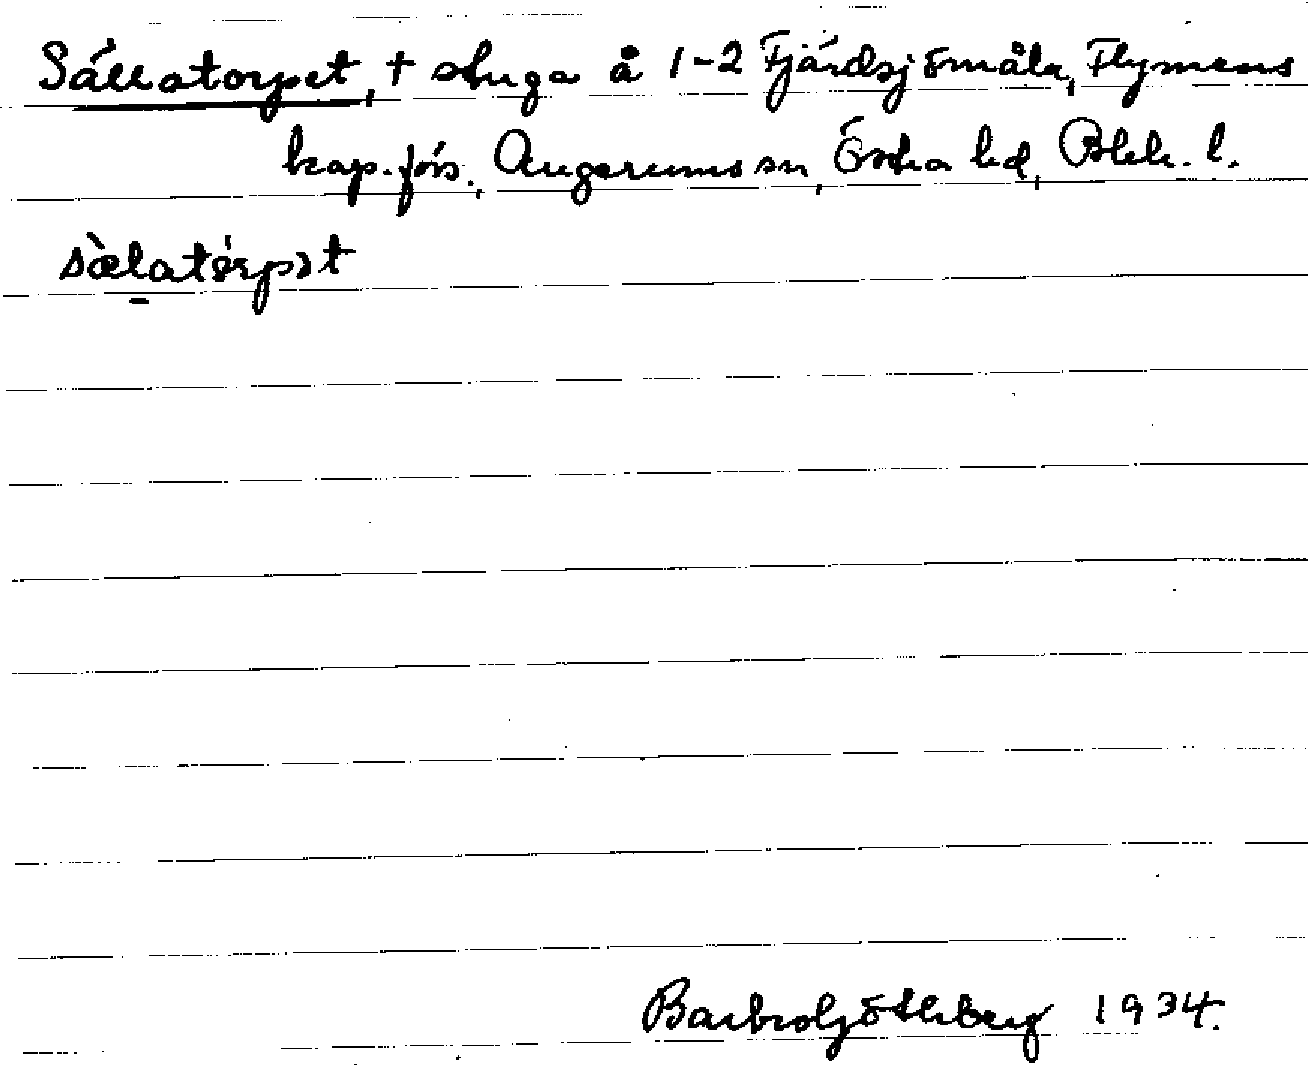 Sällatorpet, † stuga å 1-2 Fjärdsjömåla, Flymens
kap.förs., Augerums sn, Östra hd, Blek. l.
sæ̀latórpət
Barbro Ljöthberg 1934.